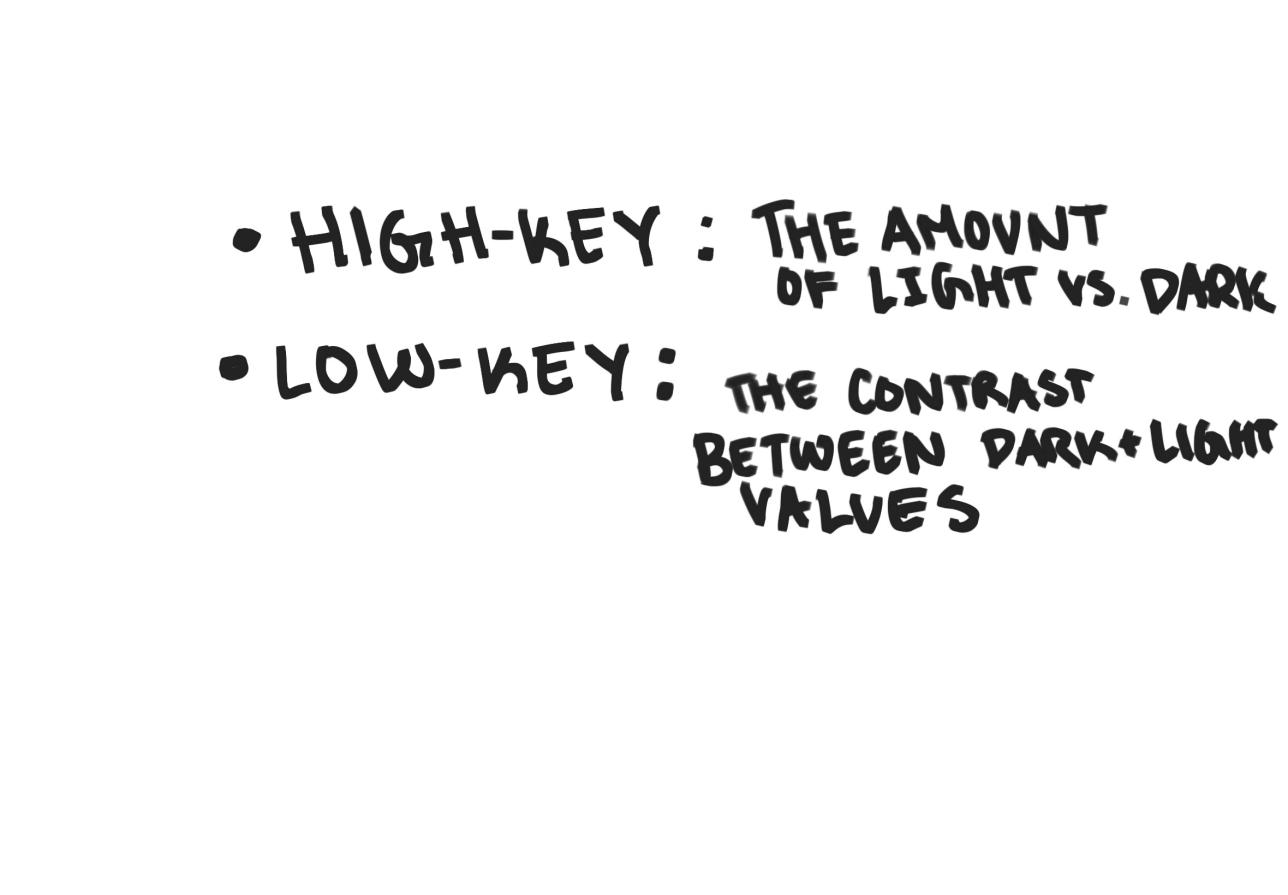 • HIGH-KEY : THE AMOUNT
OF LIGHT VS. DARK
• LOW-KEY : THE CONTRAST
BETWEEN DARK + LIGHT
VALUES